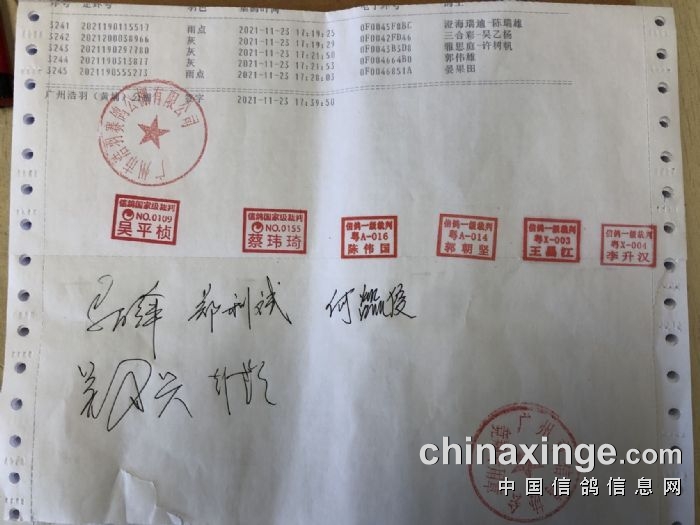 3241 2021190115517 雨点 2021-11-23 17:19:25 0F0045F8BC 澄海瑞迪-陈瑞雄
3242 2021200038966 灰 2021-11-23 17:19:29 0F0042FD46 三合彩-吴乙杨
3243 2021190297780 灰 2021-11-23 17:21:50 0F0043B3D8 雅思庭-许树帆
3244 2021190313817 灰 2021-11-23 17:21:53 0F004664B0 郭伟雄
3245 2021190555273 雨点 2021-11-23 17:28:03 0F0046851A 晏果田
广州浩羽（黄埔）公棚 签字 2021-11-23 17:39:50
广州市浩羽赛鸽公棚有限公司
信鸽国家级裁判 NO.0109 吴平桢
信鸽国家级裁判 NO.0155 蔡玮琦
信鸽一级裁判 粤A-016 陈伟国
信鸽一级裁判 粤A-014 郭朝坚
信鸽一级裁判 粤X-003 王昌红
信鸽一级裁判 粤X-004 李升汉
郑利斌
广州
chinaxinge.com
中国信鸽信息网